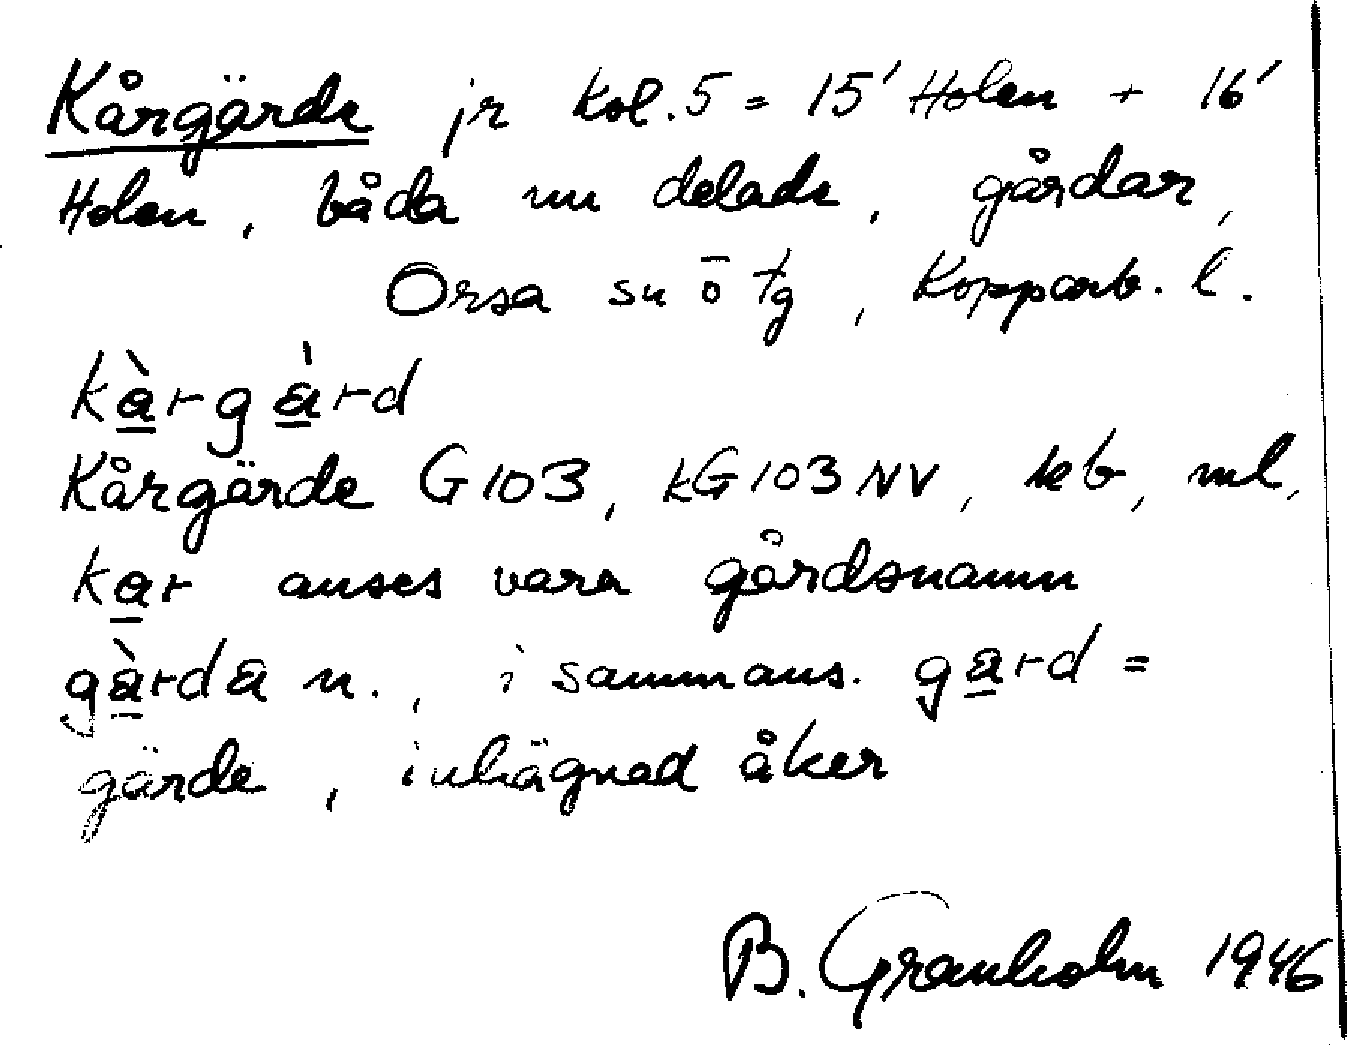 Kårgärde jr kol. 5 = 15' Holen + 16'
Holen, båda nu delade, gårdar,
Orsa sn ō tg, Kopparb. l.
kàrgàrd
Kårgärde G103, kG103NV, keb, ml,
kar anses vara gårdsnamn
gàrda n., i sammans. gard =
gärde, inhägnad åker
B. Granholm 1946